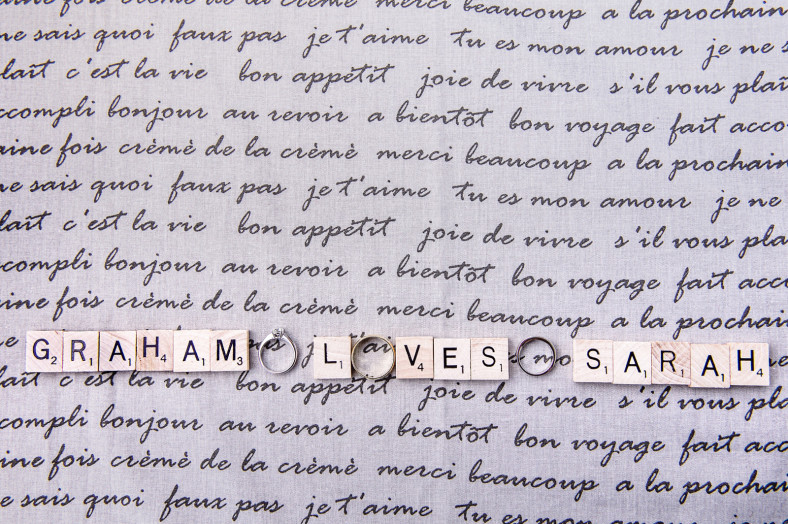 crème de la crèmè merci beaucoup a la prochain
ne sais quoi faux pas je t'aime tu es mon amour je ne s
laît c'est la vie bon appétit joie de vivre s'il vous plaî
ccompli bonjour au revoir a bientôt bon voyage fait acco
aine fois crèmè de la crèmè merci beaucoup a la prochain
ne sais quoi faux pas je t'aime tu es mon amour je ne
laît c'est la vie bon appétit joie de vivre s'il vous pla
ccompli bonjour au revoir a bientôt bon voyage fait acc
aine fois crèmè de la crèmè merci beaucoup a la prochain
G2 R1 A1 H4 A1 M3 L1 V4 E1 S1 S1 A1 R1 A1 H4
laît c'est la vie bon appétit joie de vivre s'il vous pla
compli bonjour au revoir a bientôt bon voyage fait acc
ine fois crèmè de la crèmè merci beaucoup a la prochai
e sais quoi faux pas je t'aime tu es mon amour je ne